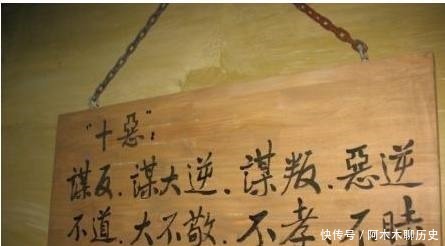 “十惡”：
謀反.謀大逆.謀叛.惡逆
不道.大不敬.不孝.不睦
快传号/阿木木聊历史